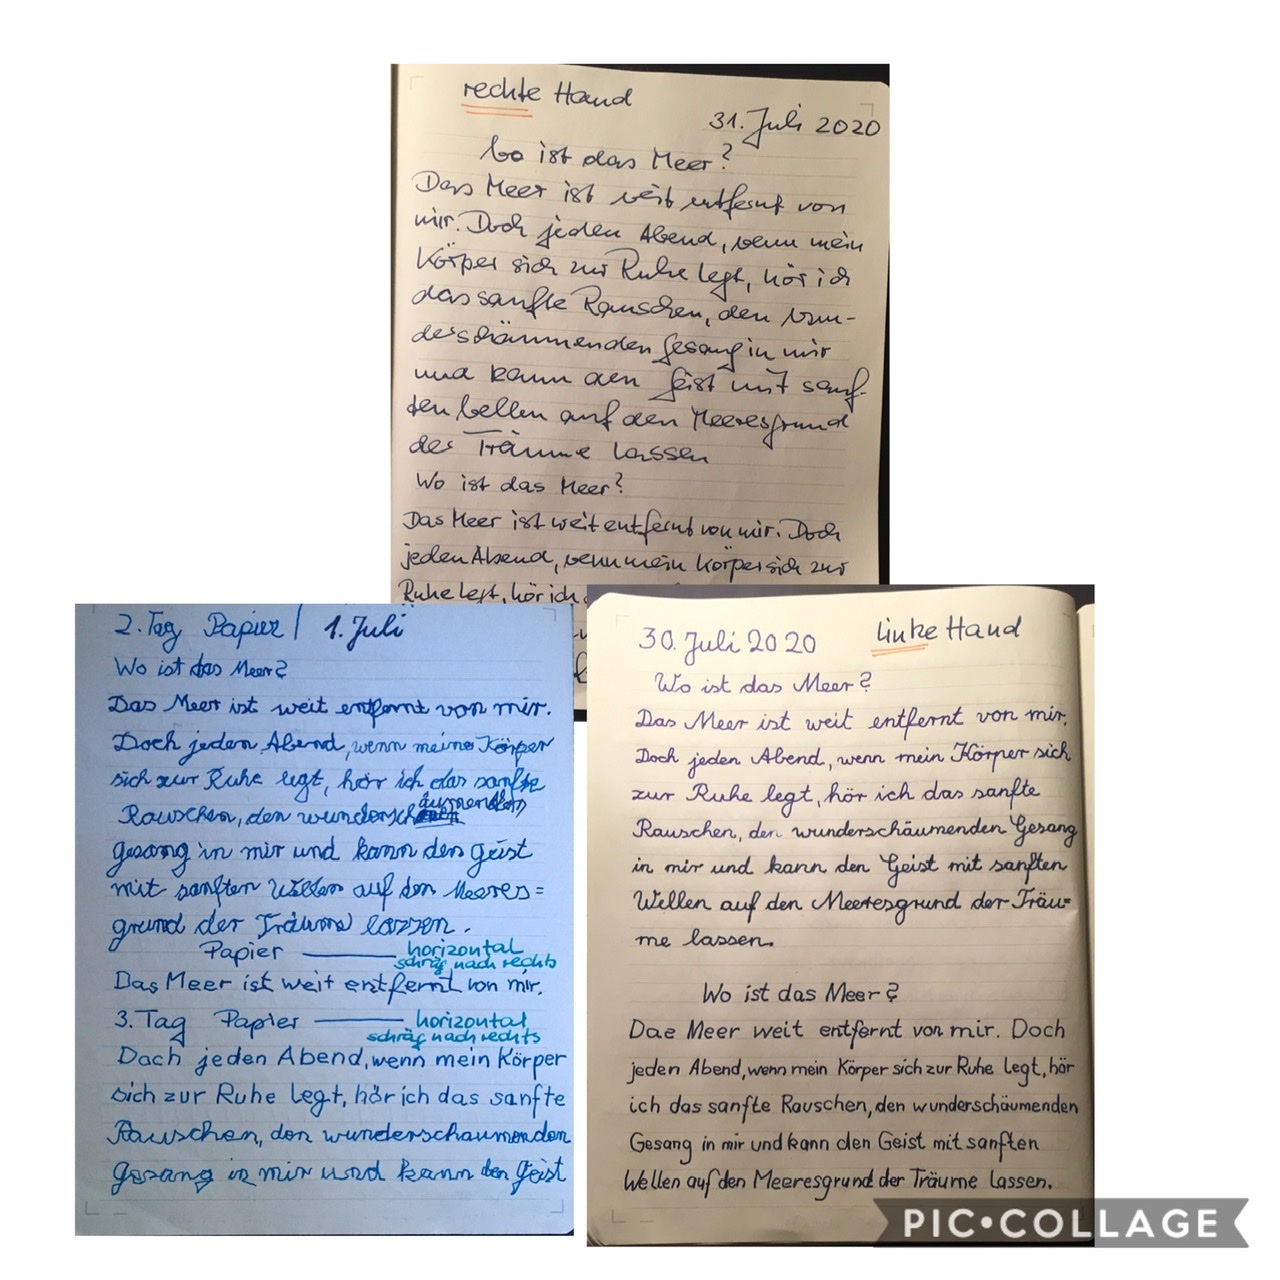 rechte Hand
31. Juli 2020
Wo ist das Meer?
Das Meer ist weit entfernt von
mir. Doch jeden Abend, wenn mein
Körper sich zur Ruhe legt, hör ich
das sanfte Rauschen, den wun-
derschäumenden Gesang in mir
und kann den Geist mit sanf-
ten Wellen auf den Meeresgrund
der Träume lassen
Wo ist das Meer?
Das Meer ist weit entfernt von mir. Doch
jeden Abend, wenn mein Körper sich zur
Ruhe legt, hör ich
2. Tag Papier / 1. Juli
Wo ist das Meer?
Das Meer ist weit entfernt von mir.
Doch jeden Abend, wenn meine Körper
sich zur Ruhe legt, hör ich das sanfte
Rauschen, den wunderschäumenden
Gesang in mir und kann den Geist
mit sanften Wellen auf den Meeres=
grund der Träume lassen.
Papier — horizontal
schräg nach rechts
Das Meer ist weit entfernt von mir.
3. Tag Papier — horizontal
schräg nach rechts
Doch jeden Abend, wenn mein Körper
sich zur Ruhe legt, hör ich das sanfte
Rauschen, den wunderschaumenden
Gesang in mir und kann den Geist
30. Juli 2020 linke Hand
Wo ist das Meer?
Das Meer ist weit entfernt von mir.
Doch jeden Abend, wenn mein Körper sich
zur Ruhe legt, hör ich das sanfte
Rauschen, den wunderschäumenden Gesang
in mir und kann den Geist mit sanften
Wellen auf den Meeresgrund der Träu=
me lassen.
Wo ist das Meer?
Das Meer weit entfernt von mir. Doch
jeden Abend, wenn mein Körper sich zur Ruhe legt, hör
ich das sanfte Rauschen, den wunderschäumenden
Gesang in mir und kann den Geist mit sanften
Wellen auf den Meeresgrund der Träume lassen.
PIC•COLLAGE